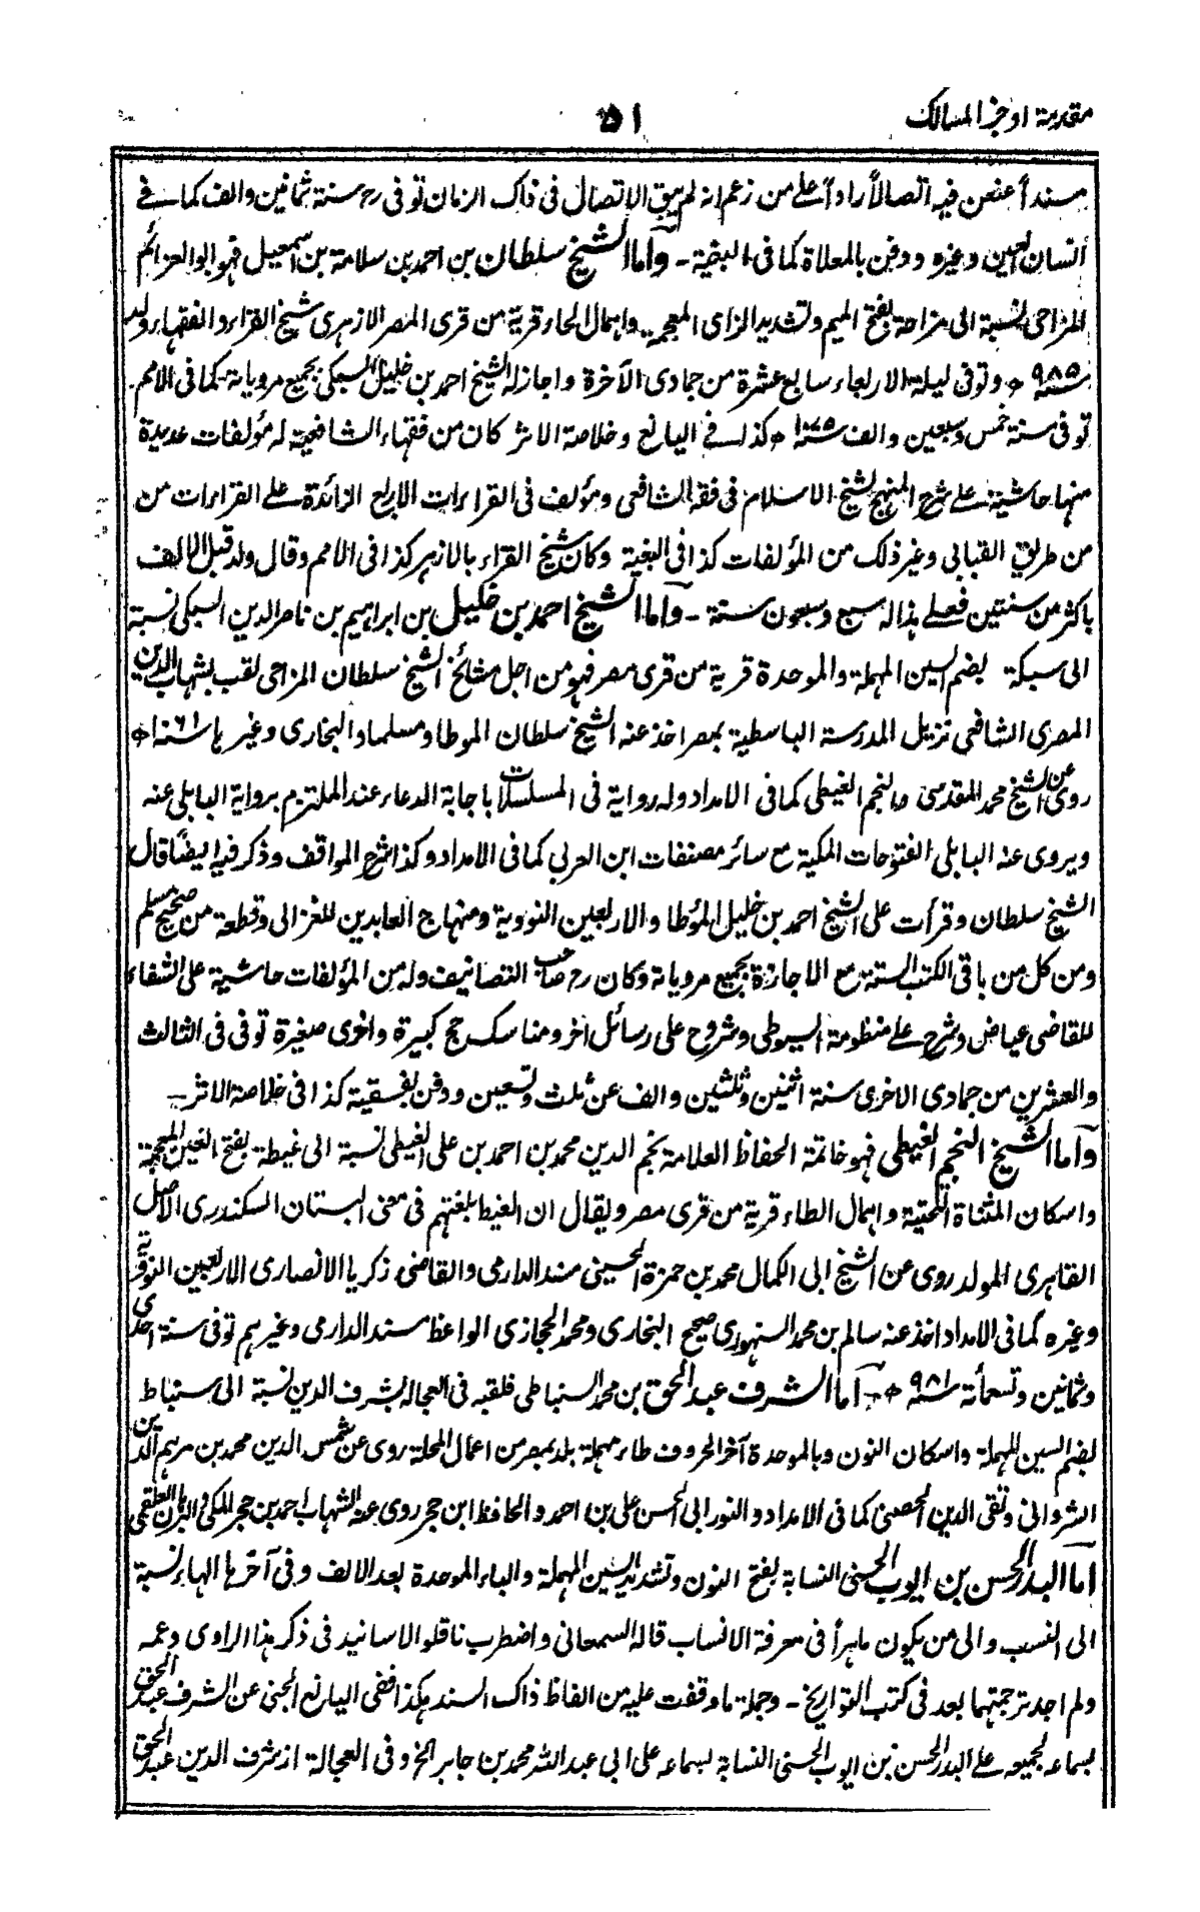 مقدمة اوجز المسالك
٥١
مسنداً عنعن فيه اتصالاً راداً على من زعم انه لم يبق الاتصال فى ذاك الزمان توفى رح سنة ثمانين والف كما في
انسان العين وغيره ودفن بالمعلاة كما فى البغية ـ وأما الشيخ سلطان بن احمد بن سلامة بن اسمعيل فهو ابو العزائم
المزاحى نسبة الى مزاحة بفتح الميم وتشديد الزاى المعجمة واهمال الحاء قرية من قرى المصر الازهرى شيخ القراء والفقهاء ولد
سنة ٩٨٥ وتوفى ليلة الاربعاء سابع عشرة من جمادى الآخرة واجاز له الشيخ احمد بن خليل السبكى بجميع مروياته كما فى الامم
توفى سنة خمس وسبعين والف سنة ١٠٧٥ كذا في اليانع وخلاصة الاثر كان من فقهاء الشافعية له مؤلفات عديدة
منها حاشية على شرح المنهج لشيخ الاسلام فى فقه الشافعى ومؤلف فى القراءات الاربع الزائدة على القراءات من
من طريق القبابى وغير ذلك من المؤلفات كذا فى البغية وكان شيخ القراء بالازهر كذا فى الامم وقال ولد قبل الالف
باكثر من سنتين فعلى هذا له سبع وسبعون سنة ـ وأما الشيخ احمد بن خليل بن ابراهيم بن ناصر الدين السبكى نسبة
الى سبكة بضم السين المهملة والموحدة قرية من قرى مصر فهو من اجل مشائخ الشيخ سلطان المزاحى لقب بشهاب الدين
المصرى الشافعى نزيل المدرسة الباسطية بمصر اخذ عنه الشيخ سلطان الموطا ومسلما والبخارى وغيرها سنة ١٠٦١
روى عن الشيخ محمد المقدسى والنجم الغيطى كما فى الامداد وله رواية فى المسلسلات باجابة الدعاء عند الملتزم برواية البابلى عنه
ويروى عنه البابلى الفتوحات المكية مع سائر مصنفات ابن العربي كما فى الامداد وكذا شرح المواقف وذكر فيه ايضاً قال
الشيخ سلطان وقرأت على الشيخ احمد بن خليل المؤطا والاربعين النووية ومنهاج العابدين للغزالى وقطعة من صحيح مسلم
ومن كل من باقى الكتب الستة مع الاجازة بجميع مروياته وكان رح صاحب التصانيف وله من المؤلفات حاشية على الشفاء
للقاضى عياض وشرح على منظومة السيوطى وشروح على رسائل اخر ومناسك حج كبيرة واخرى صغيرة توفى فى الثالث
والعشرين من جمادى الاخرى سنة اثنين وثلثين والف عن ثلث وتسعين ودفن بفسقية كذا فى خلاصة الاثر ـ
وأما الشيخ النجم الغيطى فهو خاتمة الحفاظ العلامة نجم الدين محمد بن احمد بن على الغيطى نسبة الى غيطة بفتح الغين المعجمة
واسكان المثناة التحتية واهمال الطاء قرية من قرى مصر ويقال ان الغيط بلغتهم فى معنى البستان السكندرى الاصل
القاهرى المولد روى عن الشيخ ابى الكمال محمد بن حمزة الحسينى مسند الدارمى والقاضى زكريا الانصارى الاربعين النووية
وغيره كما فى الامداد اخذ عنه سالم بن محمد السنهورى صحيح البخارى ومحمد الحجازى الواعظ مسند الدارمى وغيرهم توفى سنة احدى
وثمانين وتسعمأة سنة ٩٨١ ـ أما الشرف عبد الحق بن محمد السنباطى فلقبه فى العجالة بشرف الدين نسبة الى سنباط
بضم السين المهملة واسكان النون وبالموحدة آخر الحروف طاء مهملة بلد بمصر من اعمال المحلة روى عن شمس الدين محمد بن مرهم الدين
الشروانى وتقى الدين الحصنى كما فى الامداد والنور ابى الحسن على بن احمد والحافظ ابن حجر روى عنه الشهاب احمد بن حجر المكى والبرهان العلقمى
أما البدر الحسن بن ايوب الحسنى النسابة بفتح النون وتشديد السين المهملة والباء الموحدة بعد الالف وفى آخرها الهاء نسبة
الى النسب والى من يكون ماهراً فى معرفة الانساب قاله السمعانى واضطرب ناقلو الاسانيد فى ذكر هذا الراوى وعمه
ولم اجد ترجمتهما بعد فى كتب التواريخ ـ وجملة ما وقفت عليه من الفاظ ذاك السند هكذا ففى اليانع الجنى عن الشرف عبد الحق
بسماعه لجميعه على البدر الحسن بن ايوب الحسنى النسابة بسماعه على ابى عبد الله محمد بن جابر الخ وفى العجالة از شرف الدين عبد الحق